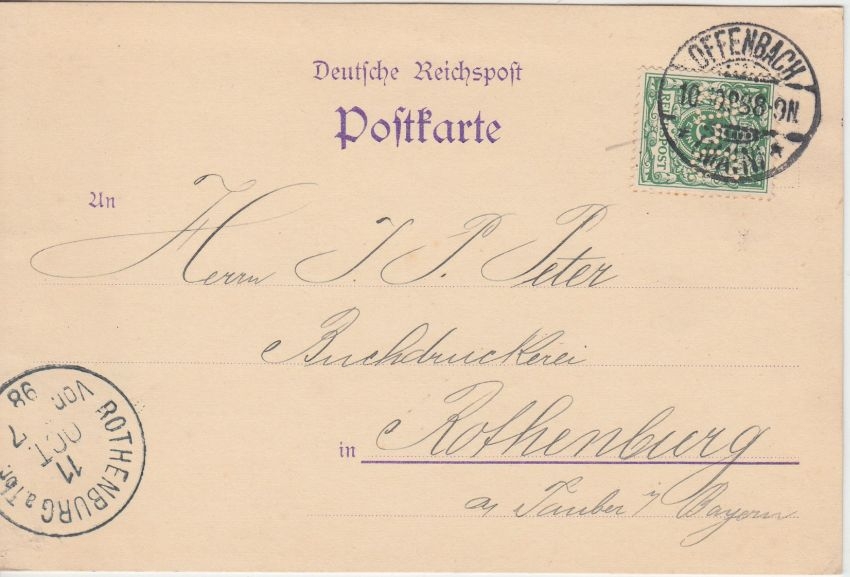 Deutsche Reichspost
Postkarte
OFFENBACH
REICHSPOST
An
Herrn J. P. Peter
Buchdruckerei
in Rothenburg
a/ Tauber i/ Bayern
ROTHENBURG a/Tbr.
11
OCT
7
Vor
98